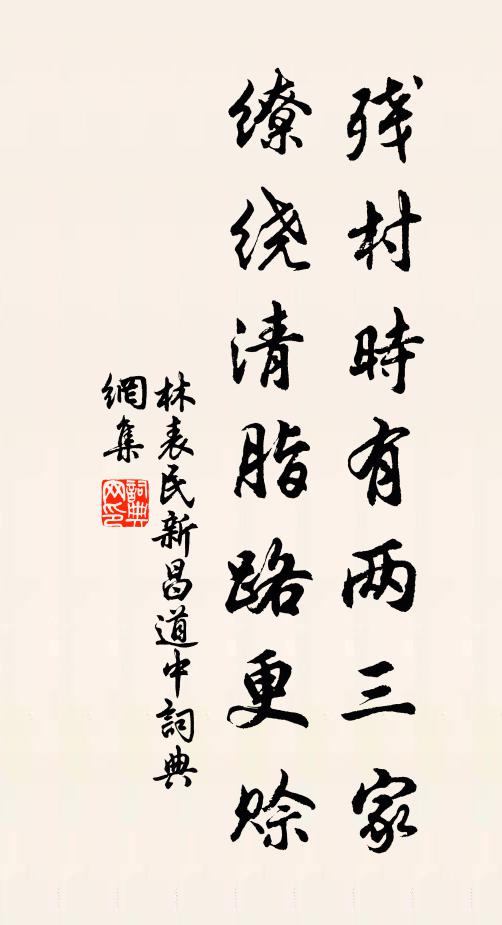 残村時有两三家
缭绕清脂路更赊
林表民新昌道中詞典
網集
詞典
网印